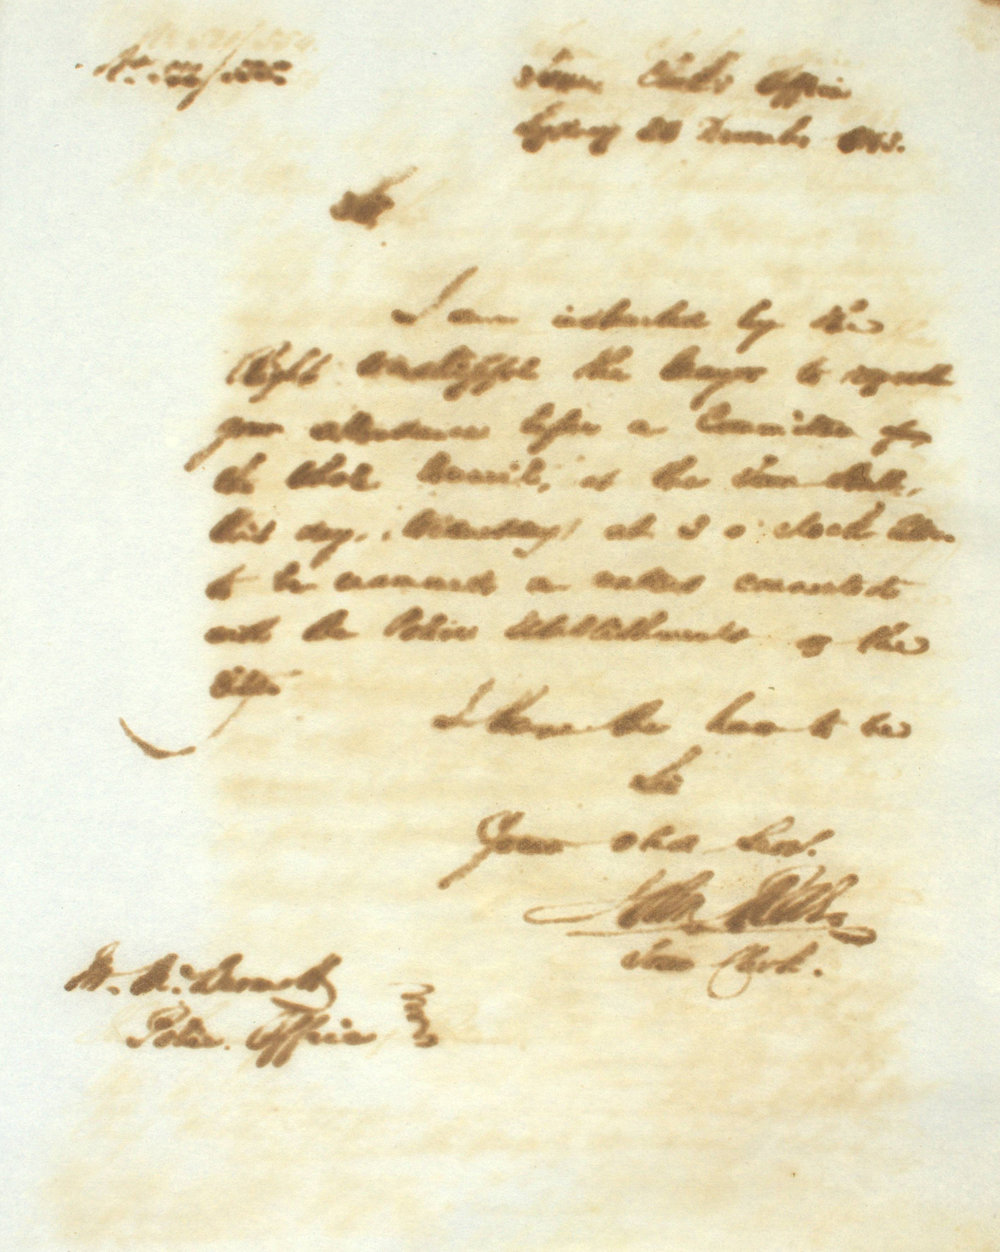 Town Clerk's Office
Sydney 20 December 1843.
Sir
I am instructed by the
Right Worshipful the Mayor to request
your attendance before a Committee of
the Whole Council, at the Town Hall,
this day, (Wednesday) at 3 o'clock then
to be examined on matters connected
with the Police Establishments of the
City
I have the honor to be
Sir
Your Obed Serv.
Town Clerk.
Mr. McDermott
Police Office